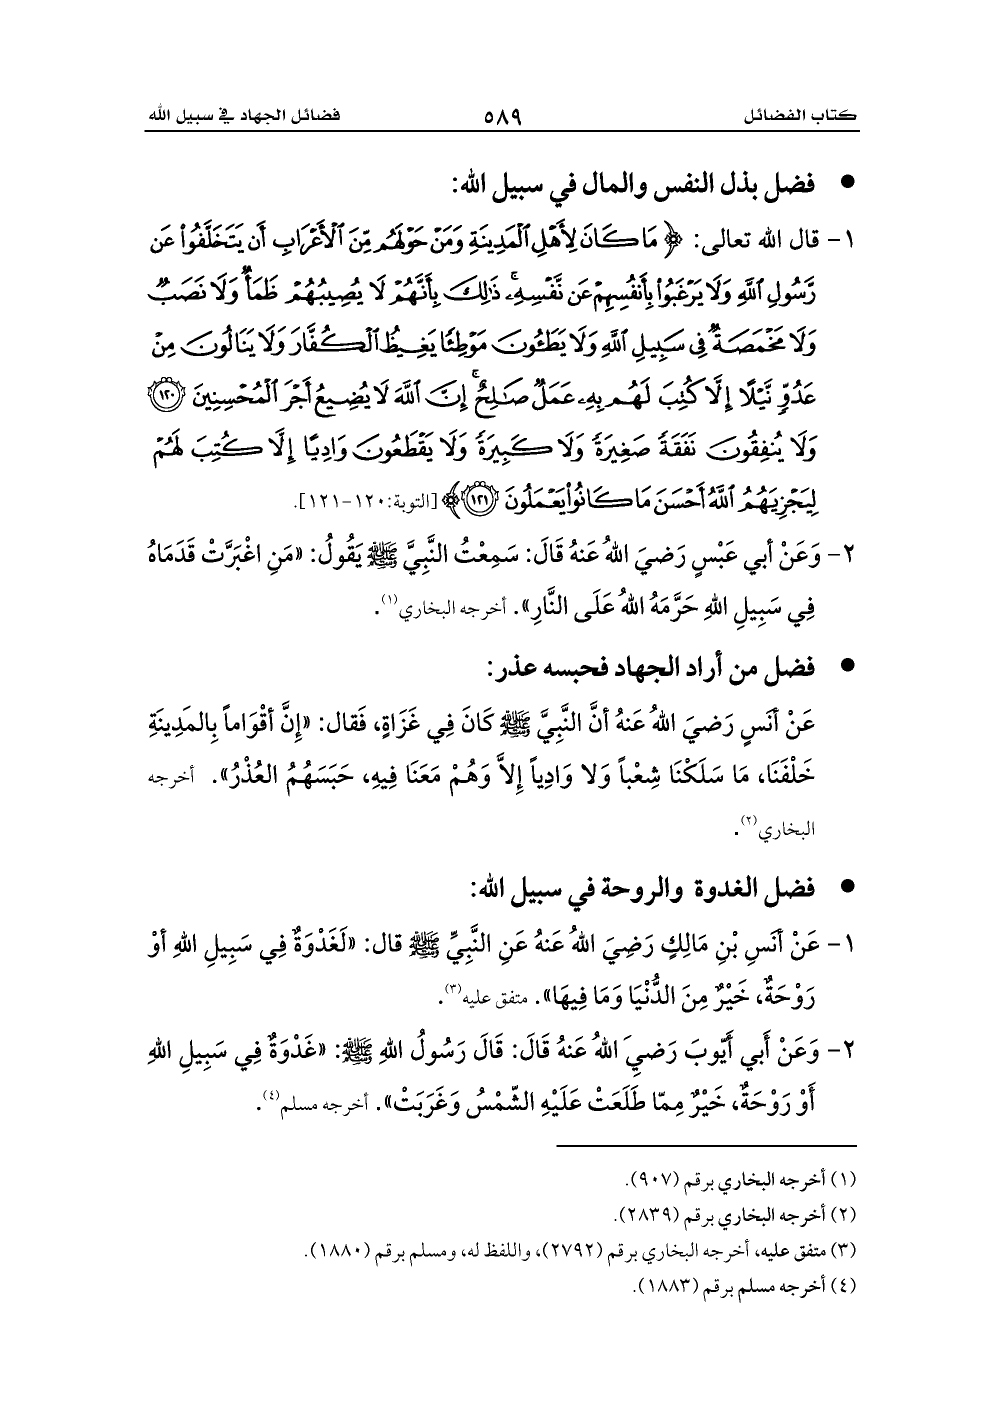 كتاب الفضائل ٥٨٩ فضائل الجهاد في سبيل الله
● فضل بذل النفس والمال في سبيل الله:
١- قال الله تعالى: ﴿ مَا كَانَ لِأَهْلِ ٱلْمَدِينَةِ وَمَنْ حَوْلَهُم مِّنَ ٱلْأَعْرَابِ أَن يَتَخَلَّفُوا۟ عَن
رَّسُولِ ٱللَّهِ وَلَا يَرْغَبُوا۟ بِأَنفُسِهِمْ عَن نَّفْسِهِۦ ۚ ذَٰلِكَ بِأَنَّهُمْ لَا يُصِيبُهُمْ ظَمَأٌ وَلَا نَصَبٌ
وَلَا مَخْمَصَةٌ فِى سَبِيلِ ٱللَّهِ وَلَا يَطَـُٔونَ مَوْطِئًا يَغِيظُ ٱلْكُفَّارَ وَلَا يَنَالُونَ مِنْ
عَدُوٍّ نَّيْلًا إِلَّا كُتِبَ لَهُم بِهِۦ عَمَلٌ صَـٰلِحٌ ۚ إِنَّ ٱللَّهَ لَا يُضِيعُ أَجْرَ ٱلْمُحْسِنِينَ ١٢٠
وَلَا يُنفِقُونَ نَفَقَةً صَغِيرَةً وَلَا كَبِيرَةً وَلَا يَقْطَعُونَ وَادِيًا إِلَّا كُتِبَ لَهُمْ
لِيَجْزِيَهُمُ ٱللَّهُ أَحْسَنَ مَا كَانُوا۟ يَعْمَلُونَ ١٢١ ﴾ [التوبة:١٢٠-١٢١].
٢- وَعَنْ أبي عَبْسٍ رَضيَ اللهُ عَنهُ قَالَ: سَمِعْتُ النَّبِيَّ ﷺ يَقُولُ: «مَنِ اغْبَرَّتْ قَدَمَاهُ
فِي سَبِيلِ اللهِ حَرَّمَهُ اللهُ عَلَى النَّارِ». أخرجه البخاري(١).
● فضل من أراد الجهاد فحبسه عذر:
عَنْ أنَسٍ رَضيَ اللهُ عَنهُ أنَّ النَّبِيَّ ﷺ كَانَ فِي غَزَاةٍ، فَقال: «إنَّ أقْوَاماً بِالمَدِينَةِ
خَلْفَنَا، مَا سَلَكْنَا شِعْباً وَلا وَادِياً إلاَّ وَهُمْ مَعَنَا فِيهِ، حَبَسَهُمُ العُذْرُ». أخرجه
البخاري(٢).
● فضل الغدوة والروحة في سبيل الله:
١- عَنْ أنَسِ بْنِ مَالِكٍ رَضِيَ اللهُ عَنهُ عَنِ النَّبِيِّ ﷺ قال: «لَغَدْوَةٌ فِي سَبِيلِ اللهِ أوْ
رَوْحَةٌ، خَيْرٌ مِنَ الدُّنْيَا وَمَا فِيهَا». متفق عليه(٣).
٢- وَعَنْ أَبي أَيُّوبَ رَضيَ اللهُ عَنهُ قَالَ: قَالَ رَسُولُ اللهِ ﷺ: «غَدْوَةٌ فِي سَبِيلِ اللهِ
أَوْ رَوْحَةٌ، خَيْرٌ مِمّا طَلَعَتْ عَلَيْهِ الشّمْسُ وَغَرَبَتْ». أخرجه مسلم(٤).
(١) أخرجه البخاري برقم (٩٠٧).
(٢) أخرجه البخاري برقم (٢٨٣٩).
(٣) متفق عليه، أخرجه البخاري برقم (٢٧٩٢)، واللفظ له، ومسلم برقم (١٨٨٠).
(٤) أخرجه مسلم برقم (١٨٨٣).